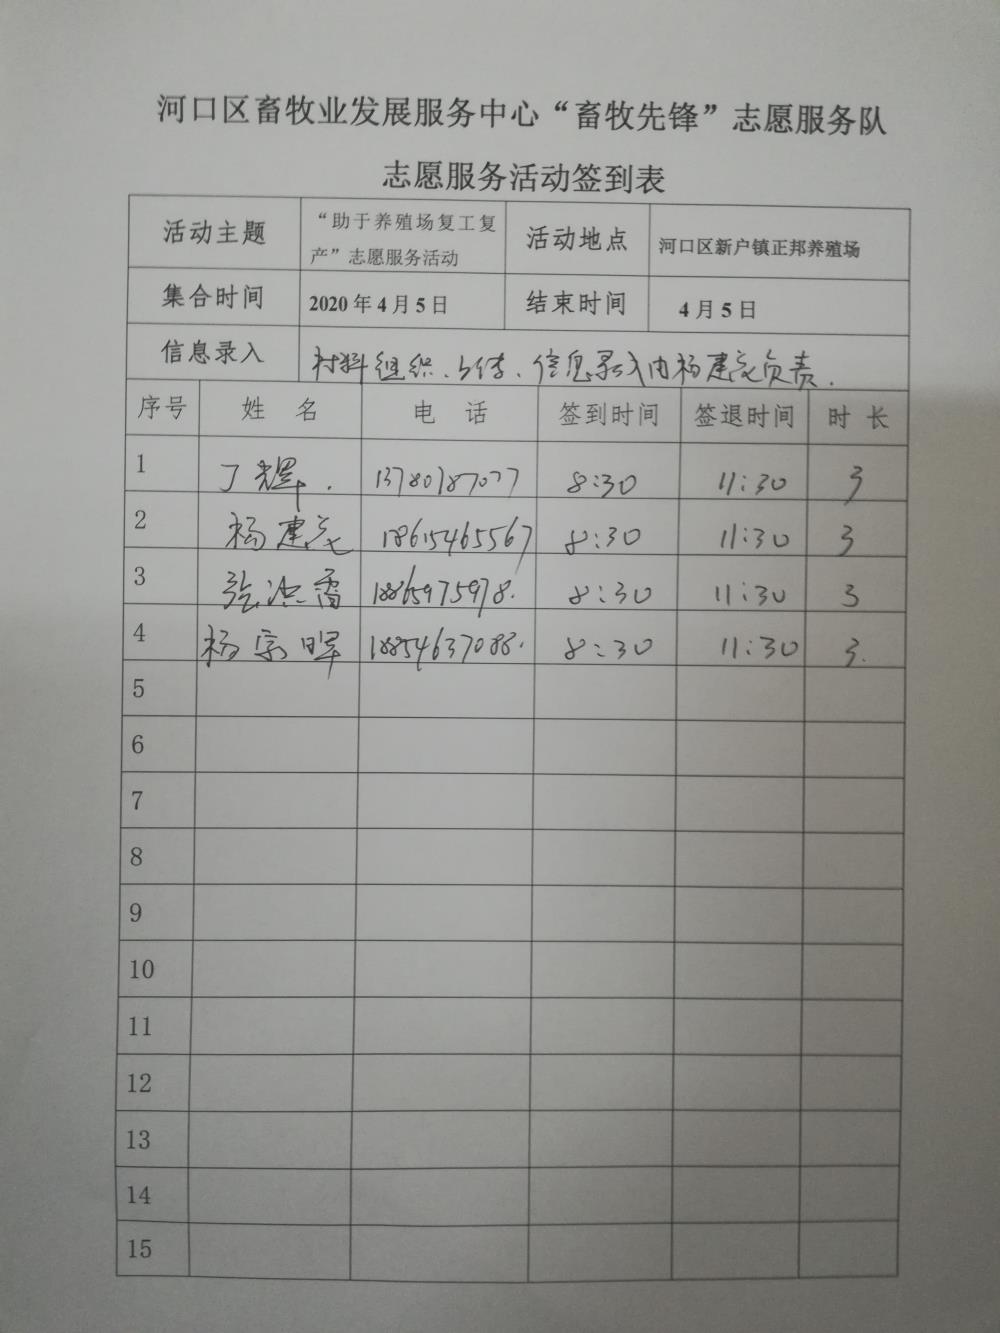 河口区畜牧业发展服务中心“畜牧先锋”志愿服务队
志愿服务活动签到表
活动主题 “助于养殖场复工复 活动地点 河口区新户镇正邦养殖场
产”志愿服务活动
集合时间 2020年4月5日 结束时间 4月5日
信息录入 材料组织、上传、信息录入由杨建负责.
序号 姓 名 电 话 签到时间 签退时间 时 长
1 丁辉. 13780187077 8:30 11:30 3
2 杨建 18615465567 8:30 11:30 3
3 张洪雷 18865975978. 8:30 11:30 3
4 杨宗晖 18854637088. 8:30 11:30 3.
5
6
7
8
9
10
11
12
13
14
15